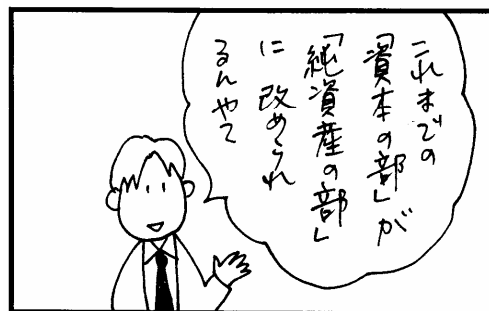 これまでの
「資本の部」が
「純資産の部」
に改められ
るんやて